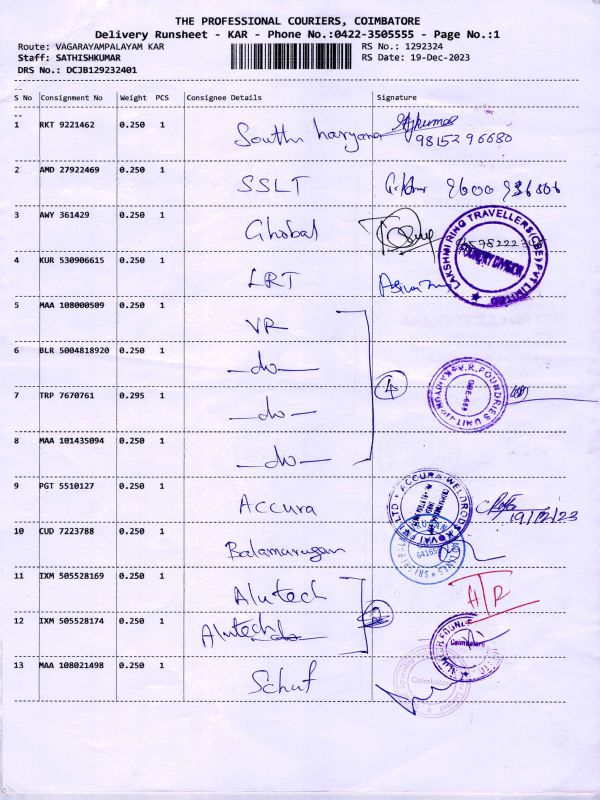 THE PROFESSIONAL COURIERS, COIMBATORE
Delivery Runsheet - KAR - Phone No.:0422-3505555 - Page No.:1
Route: VAGARAYAMPALAYAM KAR RS No.: 1292324
Staff: SATHISHKUMAR RS Date: 19-Dec-2023
DRS No.: DCJB129232401
S No Consignment No Weight PCS Consignee Details Signature
1 RKT 9221462 0.250 1 South haryana Ajkumar
9815296680
2 AMD 27922469 0.250 1 SSLT 9600 936506
3 AWY 361429 0.250 1 Ghobal
LAKSHMI RING TRAVELLERS(CBE) PVT LIMITED
FOUNDRY DIVISION
4 KUR 530906615 0.250 1 LRT
5 MAA 108000509 0.250 1 VR
6 BLR 5004818920 0.250 1 -do- 4
7 TRP 7670761 0.295 1 -do-
V.R. FOUNDRIES UNIT
8 MAA 101435094 0.250 1 -do-
9 PGT 5510127 0.250 1 Accura 19/12/23
ACCURA WELDRODS KOVAI PVT LTD
10 CUD 7223788 0.250 1 Balamurugan
11 IXM 505528169 0.250 1 Alutech
12 IXM 505528174 0.250 1 Alutech do 2
Coimbatore
13 MAA 108021498 0.250 1 Schuf
Coimbatore